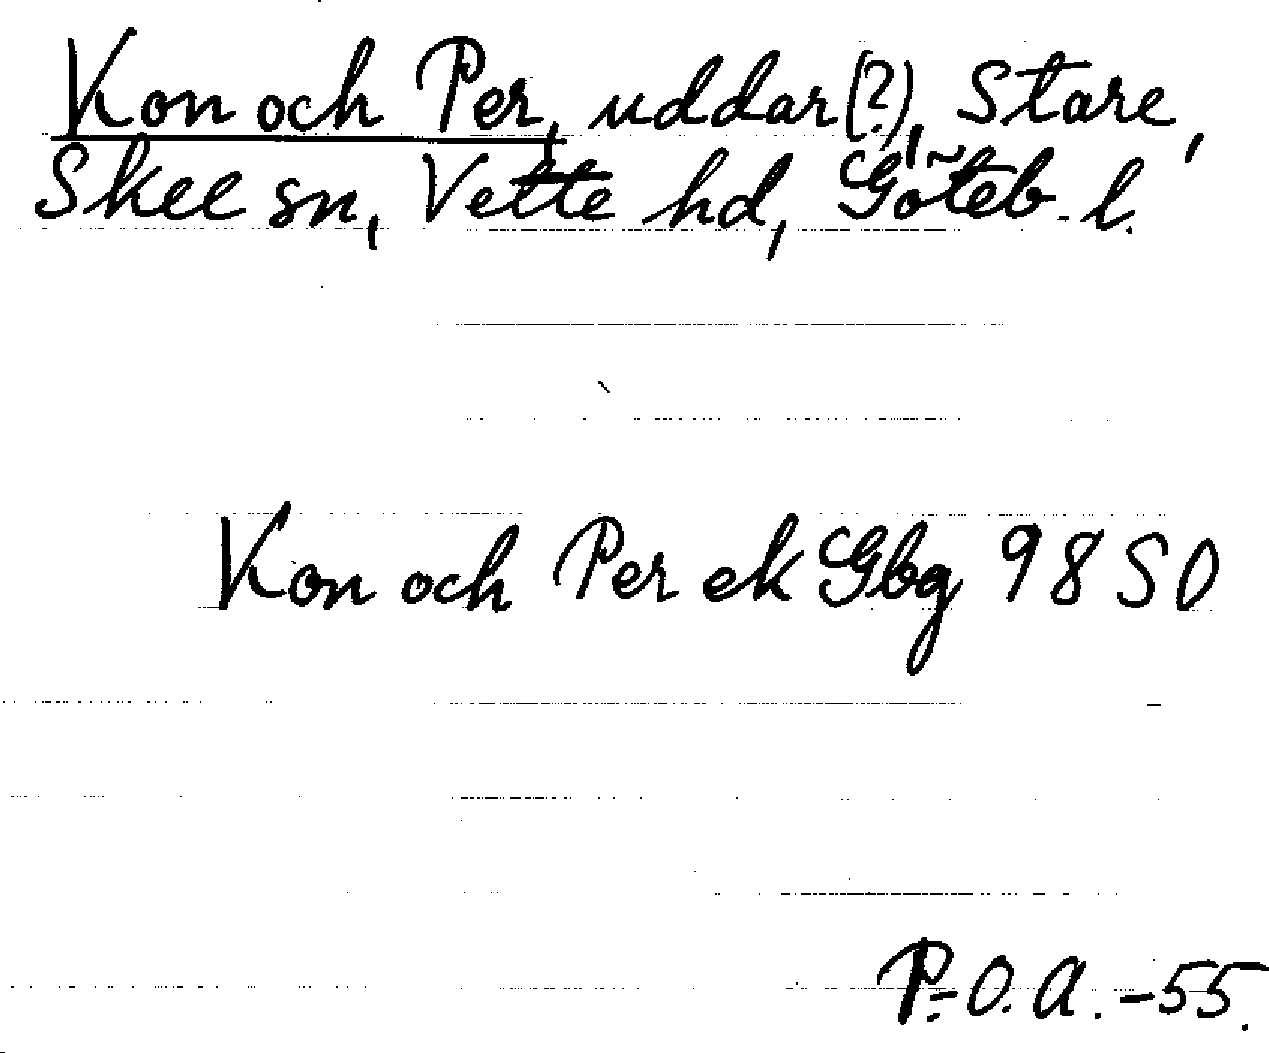 Kon och Per, uddar(?), Stare,
Skee sn, Vette hd, Göteb. l.
Kon och Per ek Gbg 98 SO
P.-O. A. -55.